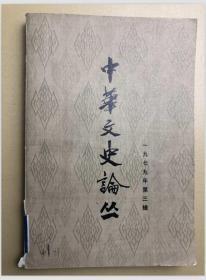 中華文史論丛
一九七九年第三輯